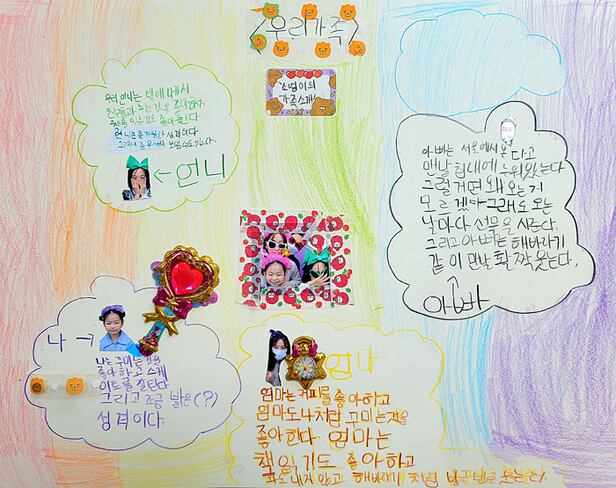 <우리가족>
소영이의
가족소개
우리 언니는 밖에 나가서
친구들과 노는 것을 좋아하고
책을 읽는 것도 좋아한다
언니는
← 언니
아빠는 서울에서 온다고
맨날 집 내에 누워있는다
그럴거면 왜 오는지
모르겠다 그래도 오는
날마다 선물을 사준다.
그리고 아빠는 해바라기
같이 맨날 활짝 웃는다.
↑
아빠
나 →
나는 꾸미는 것을
좋아하고 스케
이트를 잘탄다
그리고 조금 밝은(?)
성격이다.
엄마
엄마는 커피를 좋아하고
엄마도 나처럼 꾸미는 것을
좋아한다. 엄마는
책 읽기도 좋아하고
내지 않고 해바라기 처럼 밝은